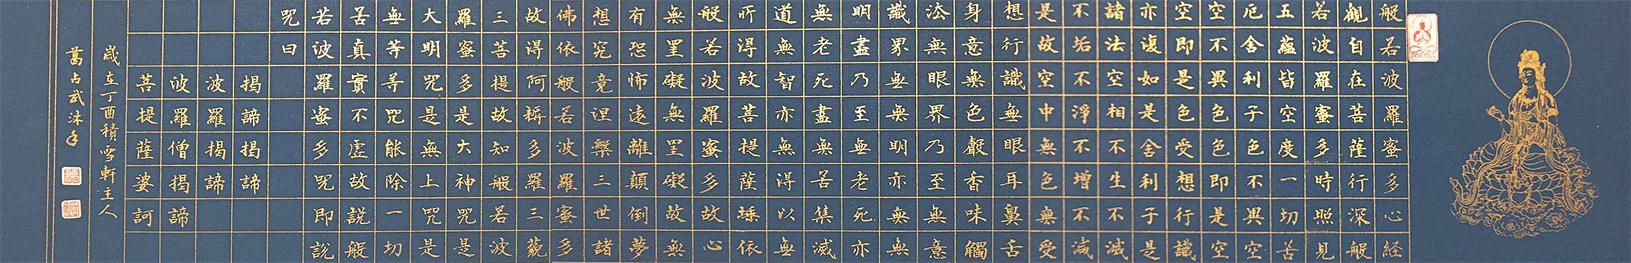 般若波羅蜜多心経
觀自在菩薩行深般
若波羅蜜多時照見
五蘊皆空度一切苦
厄舍利子色不異空
空不異色色即是空
空即是色受想行識
亦復如是舍利子是
諸法空相不生不滅
不垢不淨不增不減
是故空中無色無受
想行識無眼耳鼻舌
身意無色聲香味觸
法無眼界乃至無意
識界無無明亦無無
明盡乃至無老死亦
無老死盡無苦集滅
道無智亦無得以無
所得故菩提薩埵依
般若波羅蜜多故心
無罣礙無罣礙故無
有恐怖遠離顛倒夢
想究竟涅槃三世諸
佛依般若波羅蜜多
故得阿耨多羅三藐
三菩提故知般若波
羅蜜多是大神咒是
大明咒是無上咒是
無等等咒能除一切
苦真實不虛故說般
若波羅蜜多咒即說
咒曰
揭諦揭諦
波羅揭諦
波羅僧揭諦
菩提薩婆訶
歲在丁酉積雪軒主人
葛占武沐手